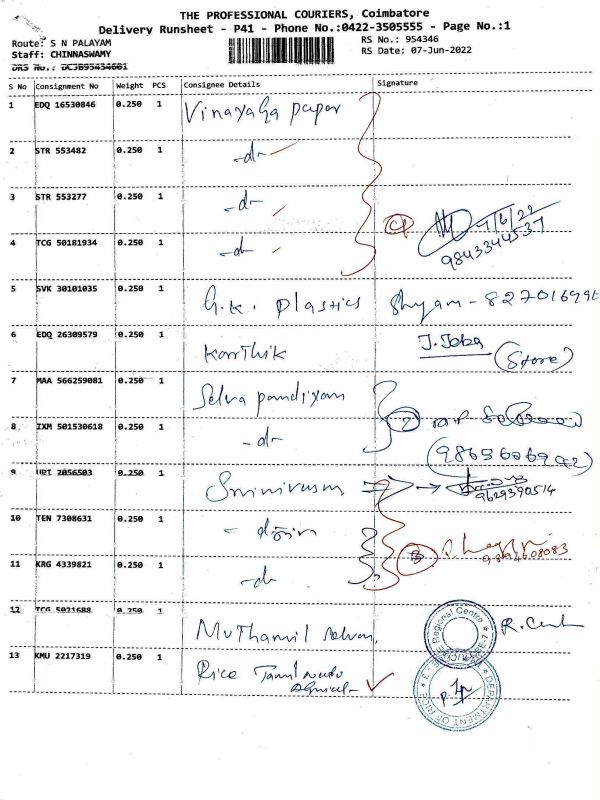 THE PROFESSIONAL COURIERS, Coimbatore
Delivery Runsheet - P41 - Phone No.:0422-3505555 - Page No.:1
Route: S N PALAYAM RS No.: 954346
Staff: CHINNASWAMY RS Date: 07-Jun-2022
DRS No.: DCJB95434601
S No Consignment No Weight PCS Consignee Details Signature
1 EDQ 16530846 0.250 1 Vinayaga paper
2 STR 553482 0.250 1 -d-
3 STR 553277 0.250 1 -d-
7/6/22
4 TCG 50181934 0.250 1 -d- 9843344537
5 SVK 30101035 0.250 1 G.K. Plastics Shyam - 82701699
6 EDQ 26309579 0.250 1 Karthik J. Jeba
(Store)
7 MAA 566259081 0.250 1 Selva pandiyan
8 IXM 501530618 0.250 1 -d-
9 URT 2056503 0.250 1 Srinivasan
9629390514
10 TEN 7308631 0.250 1
11 KRG 4339821 0.250 1 -d-
12 TCG 5021688 0.250 1 Muthamil selvan,
Regional Centre
13 KMU 2217319 0.250 1 Rice Tamil nadu
DEPARTMENT OF RICE